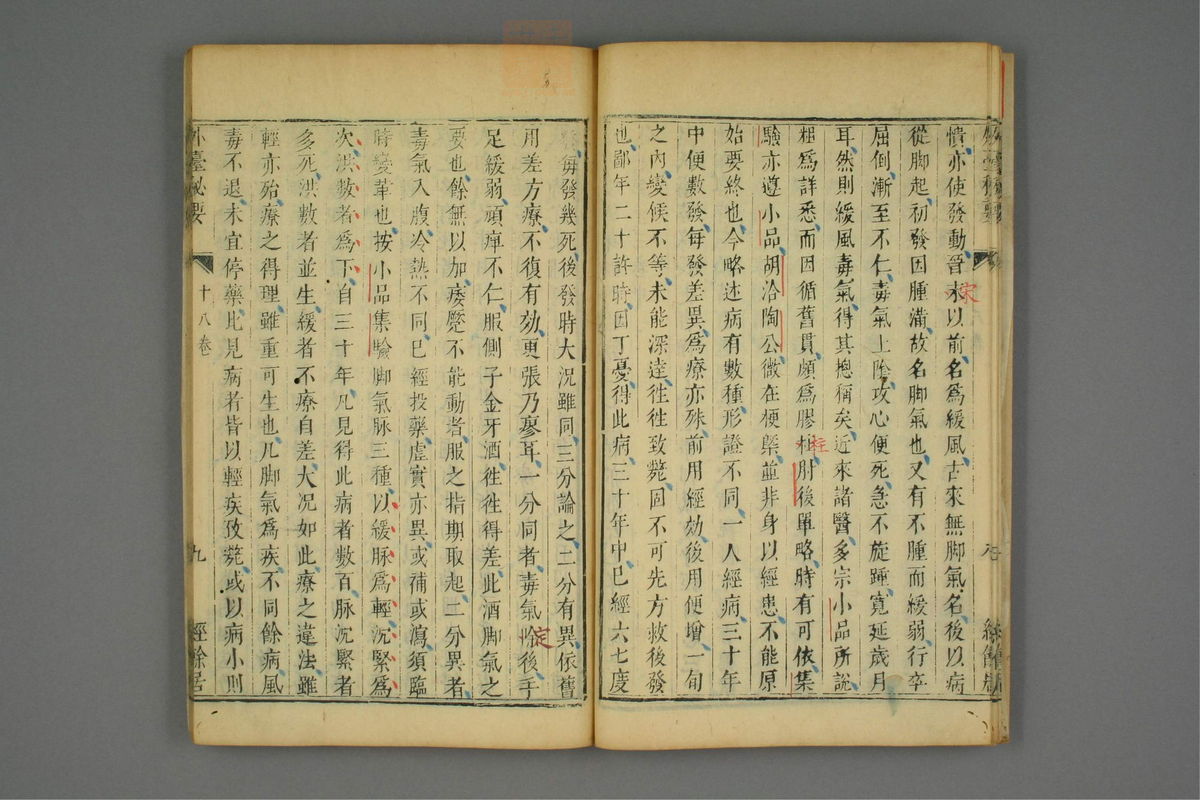 憒亦使發動晉末以前名爲緩風古來無脚氣名後以病
宋
從脚起初發因腫滿故名脚氣也又有不腫而緩弱行卒
屈倒漸至不仁毒氣上陰攻心便死急不旋踵寬延歲月
耳然則緩風毒氣得其摠稱矣近來諸醫多宗小品所說
粗爲詳悉而因循舊貫頗爲膠柱肘後單略時有可依集
柱
驗亦遵小品胡洽陶公微在梗槩並非身以經患不能原
始要終也今略述病有數種形證不同一人經病三十年
中便數發每發差異爲療亦殊前用經効後用便增一旬
之內變候不等未能深達徃徃致斃固不可先方救後發
也鄙年二十許時因丁憂得此病三十年中已經六七度
每發幾死後發時大況雖同三分論之二分有異依舊
用差方療不復有効更張乃廖耳一分同者毒氣後手
定
足緩弱頑痺不仁服側子金牙酒徃徃得差此酒脚氣之
要也餘無以加痿躄不能動者服之指期取起二分異者
毒氣入腹冷熱不同已經投藥虛實亦異或補或瀉須臨
時變革也按小品集驗脚氣脉三種以緩脉爲輕沉緊爲
次洪數者爲下自三十年凡見得此病者數百脉沉緊者
多死洪數者並生緩者不療自差大况如此療之違法雖
輕亦殆療之得理雖重可生也凡脚氣爲疾不同餘病風
毒不退未宜停藥比見病者皆以輕疾致斃或以病小則
外臺秘要
十八卷
九
經餘居